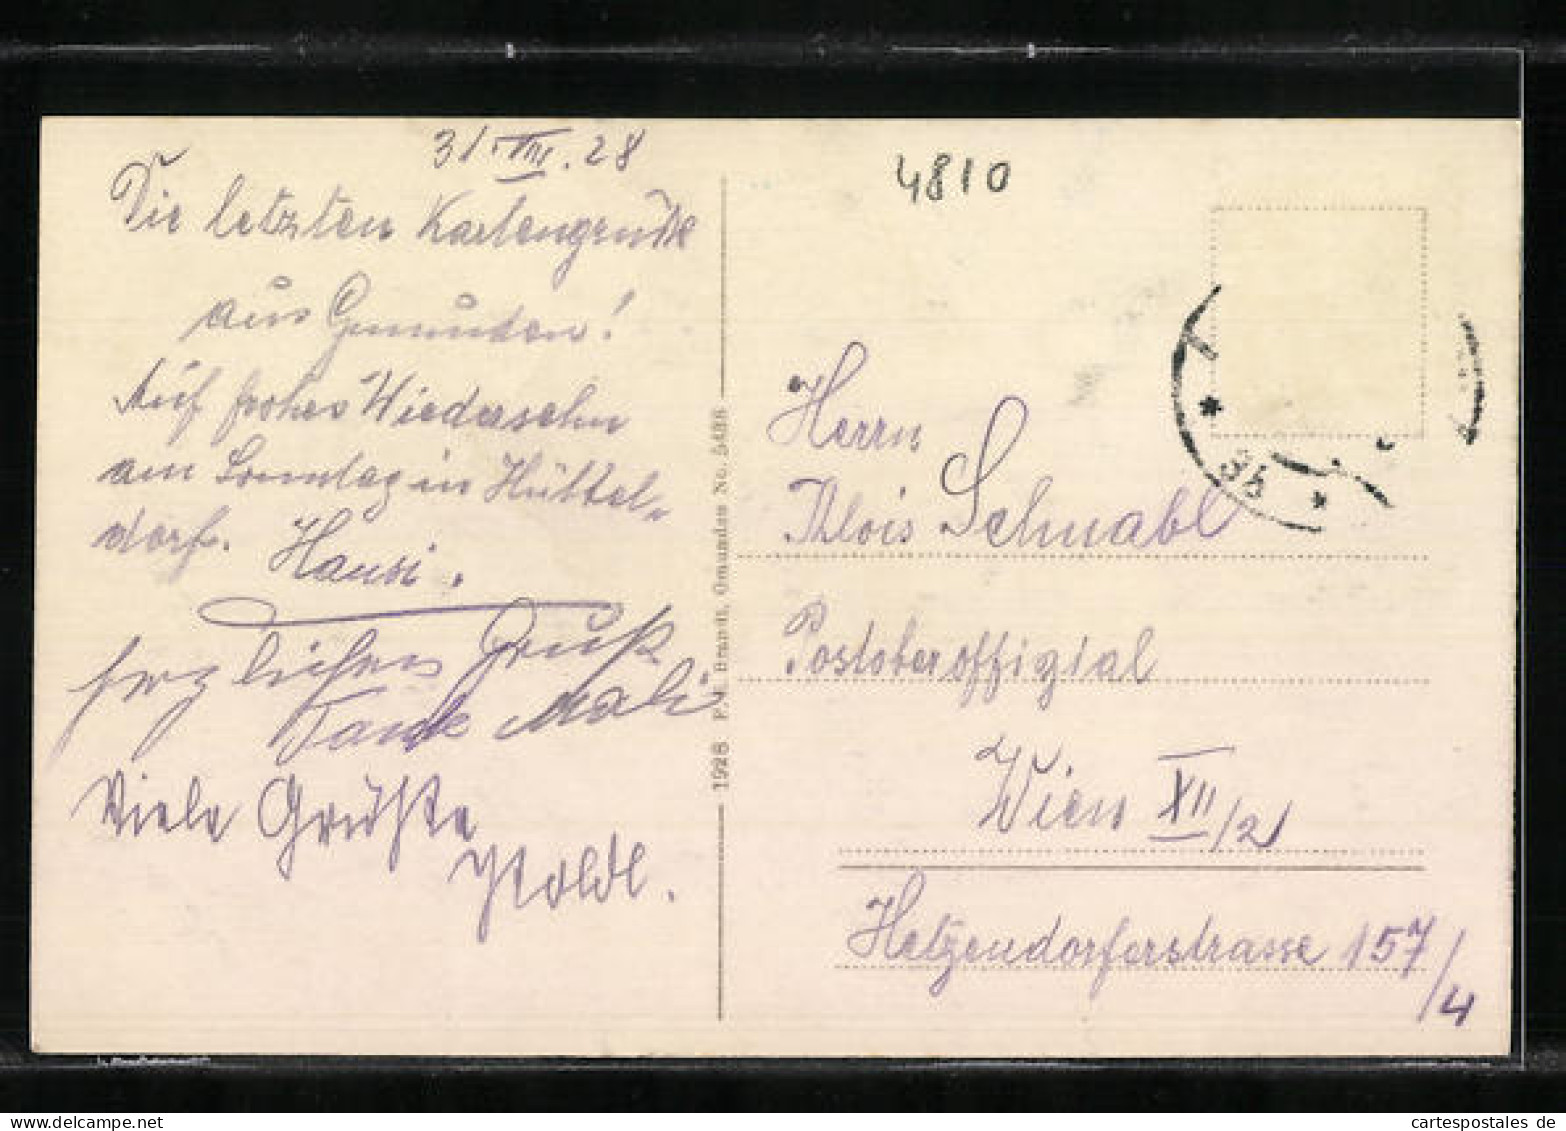 31.VIII.28
Die letzten Kartengrüße
aus Gmunden!
Auf frohes Wiedersehn
am Sonntag in Hüttel-
dorf. Hansi.
herzlichen Gruß
Tante Mali
Viele Grüße
Poldl.
1928 F. E. Brandt, Gmunden No. 5436
4810
3b
Herrn
Alois Schnabl
Postoberoffizial
Wien XII/2
Hetzendorferstrasse 157/4
cartespostales de